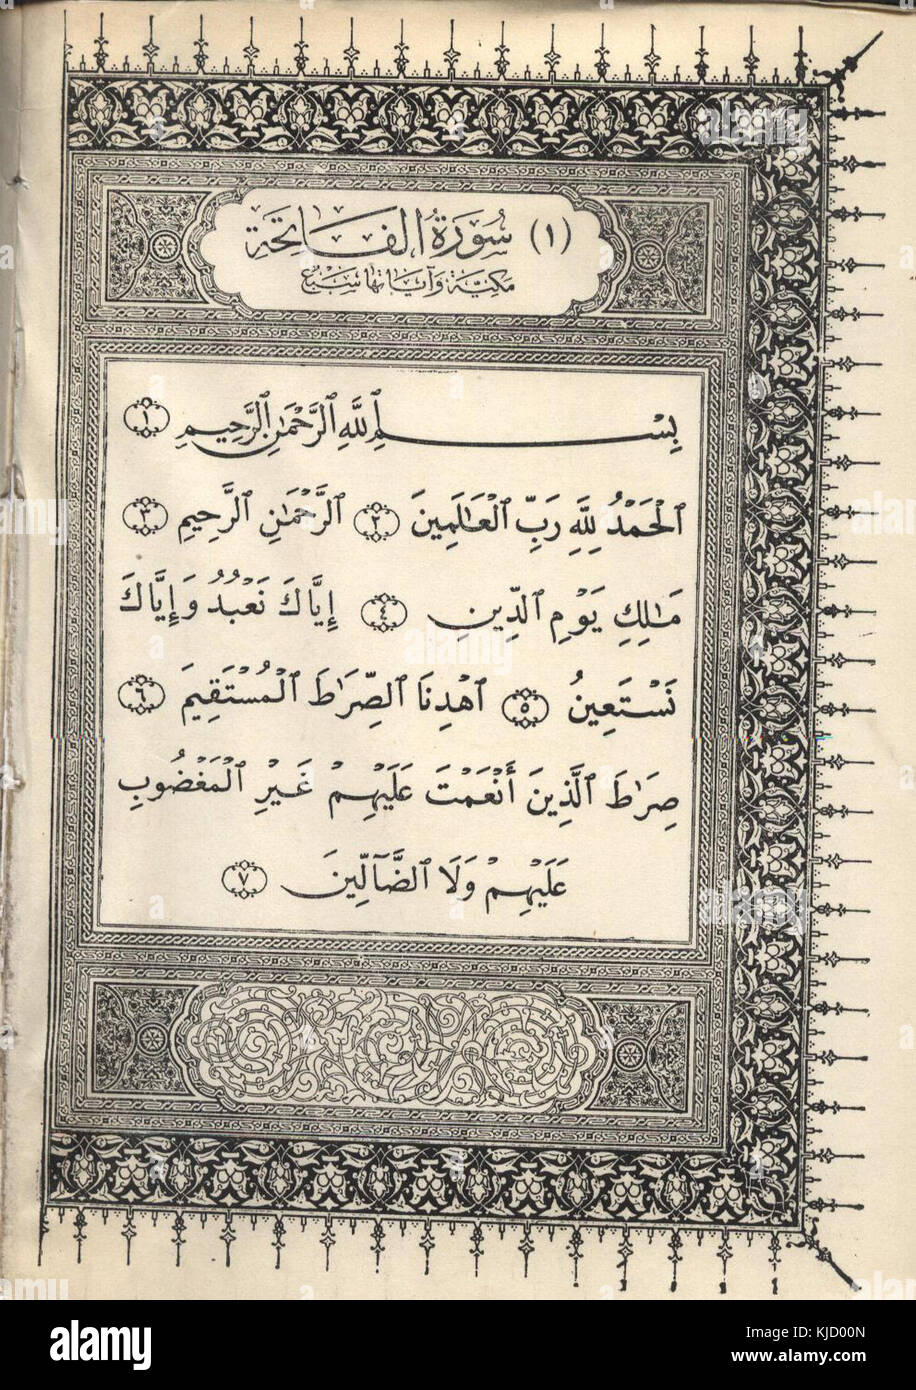 (١) سُورَةُ الفَاتِحَة
مَكِيَّة وَآيَاتهَا سَبْعٌ
بِسْمِ ٱللَّهِ ٱلرَّحْمَٰنِ ٱلرَّحِيمِ ١
ٱلْحَمْدُ لِلَّهِ رَبِّ ٱلْعَٰلَمِينَ ٢ ٱلرَّحْمَٰنِ ٱلرَّحِيمِ ٣
مَٰلِكِ يَوْمِ ٱلدِّينِ ٤ إِيَّاكَ نَعْبُدُ وَإِيَّاكَ
نَسْتَعِينُ ٥ ٱهْدِنَا ٱلصِّرَٰطَ ٱلْمُسْتَقِيمَ ٦
صِرَٰطَ ٱلَّذِينَ أَنْعَمْتَ عَلَيْهِمْ غَيْرِ ٱلْمَغْضُوبِ
عَلَيْهِمْ وَلَا ٱلضَّآلِّينَ ٧
alamy
alamy
Image ID: KJD00N
www.alamy.com